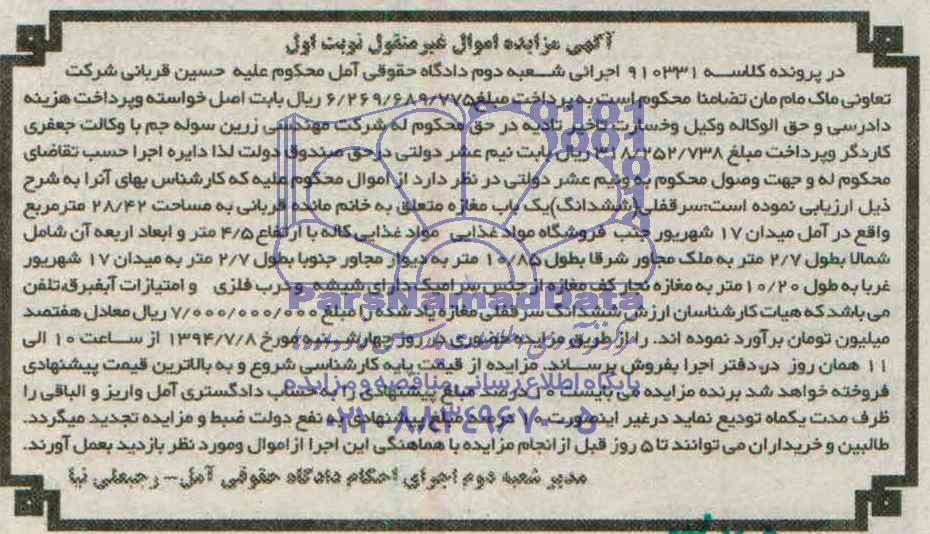 آگهی مزایده اموال غیر منقول نوبت اول
در پرونده کلاسه ۹۱۰۳۳۱ اجرائی شعبه دوم دادگاه حقوقی آمل محکوم علیه حسین قربانی شرکت
تعاونی ماک مام مان تضامنا محکوم است به پرداخت مبلغ ۶/۲۶۹/۶۸۹/۷۷۵ ریال بابت اصل خواسته وپرداخت هزینه
دادرسی و حق الوکاله وکیل وخسارت تاخیر تادیه در حق محکوم له شرکت مهندسی زرین سوله جم با وکالت جعفری
کاردگر وپرداخت مبلغ ۳۱۸/۲۵۲/۷۳۸ ریال بابت نیم عشر دولتی درحق صندوق دولت لذا دایره اجرا حسب تقاضای
محکوم له و جهت وصول محکوم به ونیم عشر دولتی در نظر دارد از اموال محکوم علیه که کارشناس بهای آنرا به شرح
ذیل ارزیابی نموده است:سرقفلی(ششدانگ)یک باب مغازه متعلق به خانم مانده قربانی به مساحت ۲۸/۴۲ مترمربع
واقع در آمل میدان ۱۷ شهریور جنب فروشگاه مواد غذایی مواد غذایی کاله با ارتفاع ۴/۵ متر و ابعاد اربعه آن شامل
شمالا بطول ۲/۷ متر به ملک مجاور شرقا بطول ۱۰/۸۵ متر به دیوار مجاور جنوبا بطول ۲/۷ متر به میدان ۱۷ شهریور
غربا به طول ۱۰/۲۰ متر به مغازه نجار کف مغازه از جنس سرامیک دارای شیشه و درب فلزی و امتیازات آب،برق،تلفن
می باشد که هیات کارشناسان ارزش ششدانگ سرقفلی مغازه یاد شده را مبلغ ۷/۰۰۰/۰۰۰/۰۰۰ ریال معادل هفتصد
میلیون تومان برآورد نموده اند. را از طریق مزایده حضوری در روز چهارشنبه مورخ ۱۳۹۴/۷/۸ از ساعت ۱۰ الی
۱۱ همان روز در دفتر اجرا بفروش برساند. مزایده از قیمت پایه کارشناسی شروع و به بالاترین قیمت پیشنهادی
فروخته خواهد شد برنده مزایده می بایست ۱۰ درصد مبلغ پیشنهادی را به حساب دادگستری آمل واریز و الباقی را
ظرف مدت یکماه تودیع نماید درغیر اینصورت ۱۰ درصد مبلغ پیشنهادی به نفع دولت ضبط و مزایده تجدید میگردد.
طالبین و خریداران می توانند تا ۵ روز قبل از انجام مزایده با هماهنگی این اجرا از اموال ومورد نظر بازدید بعمل آورند.
مدیر شعبه دوم اجرای احکام دادگاه حقوقی آمل– رجبعلی نیا
ParsNamadData
پایگاه اطلاع رسانی مناقصه و مزایده
۰۲۱-۸۸۳۴۹۶۷۰-۵